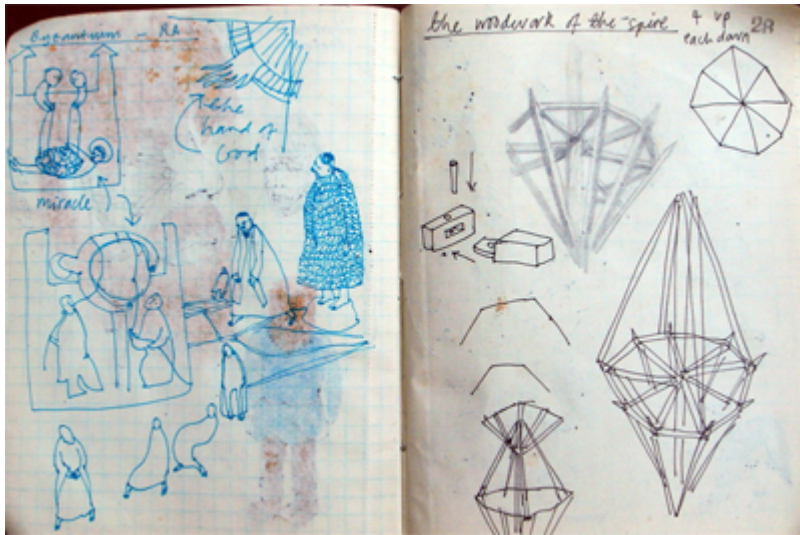 Byzantium - RA
the
hand of
God
miracle
the woodwork of the spire
4 up
each down